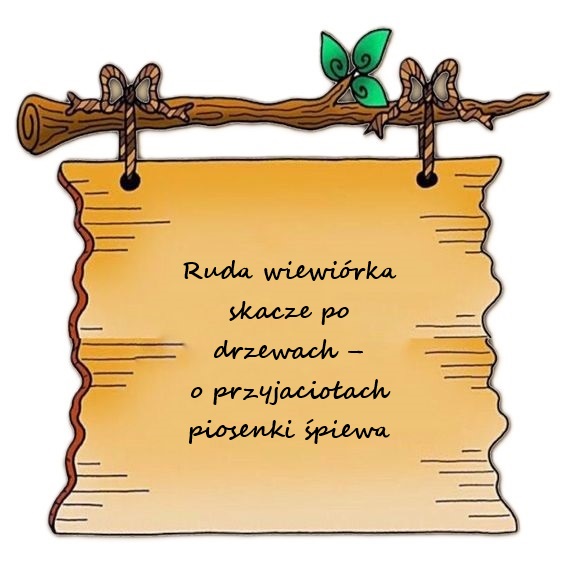 Ruda wiewiórka
skacze po
drzewach –
o przyjaciołach
piosenki śpiewa